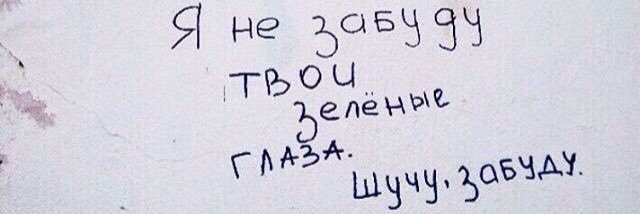 Я не забуду
твои
зелёные
глаза.
Шучу, забуду.